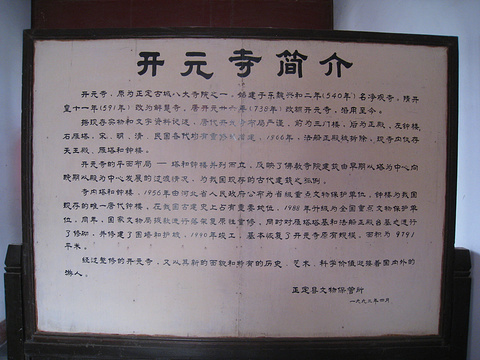 开元寺简介
开元寺，原为正定古城八大寺院之一，始建于东魏兴和二年(540年)名净观寺，隋开
皇十一年(591年)改为解慧寺，唐开元廿六年(738年)改称开元寺，沿用至今。
据现存实物和文字资料记述，唐代开元寺布局严谨，前为三门楼，后为正殿，左钟楼，
右雁塔，宋、明、清、民国各代均有重修和增建，1966年，法船正殿被拆除，现寺内仅存
天王殿、雁塔和钟楼。
开元寺的平面布局——塔和钟楼并列而立，反映了佛教寺院建筑由早期以塔为中心向
晚期以殿为中心发展的过渡情况，为我国现存的古代建筑之孤例。
寺内塔和钟楼，1956年由河北省人民政府公布为省级重点文物保护单位，钟楼为我国
现存的唯一唐代钟楼，在我国古建史上占有重要地位，1988年升级为全国重点文物保护单
位，同年，国家文物局拨款进行落架复原性重修，同时对雁塔塔基和法船正殿台基也进行
了修砌，并修建了围墙和护坡，1990年竣工，基本恢复了开元寺原有规模，面积为9791
平米。
经过整修的开元寺，又以其新的面貌和特有的历史、艺术、科学价值迎接着国内外的
游人。
正定县文物保管所
一九九二年四月